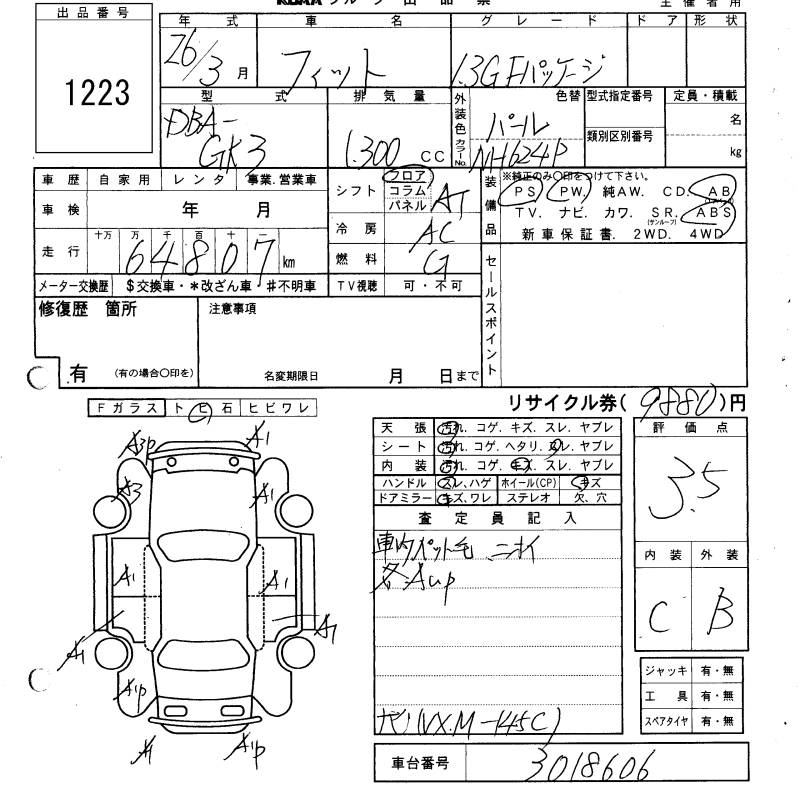 出品番号
1223
年 式 車 名 グレード ドア 形状
26/3 月 フィット 1.3G Fパッケージ
型 式 排気量 外装色 色替 型式指定番号 定員・積載
DBA-GK3 1.300 CC パール カラーNo. NH624P 類別区別番号 名 kg
車歴 自家用 レンタ 事業.営業車
車検 年 月
走行 十万 万 千 百 十 一 64807 km
メーター交換歴 $交換車・*改ざん車・#不明車
シフト フロア コラム パネル AT
冷房 AC
燃料 G
TV視聴 可・不可
装備品 ※純正のみ〇印をつけて下さい。
PS. PW. 純AW. CD. AB
TV. ナビ. カワ. SR. ABS
(サンルーフ)
新車保証書. 2WD. 4WD
セールスポイント
修復歴 箇所
有 (有の場合〇印を)
注意事項
名変期限日 月 日まで
リサイクル券( 9880 )円
Fガラス トビ石 ヒビワレ
天張 汚れ. コゲ. キズ. スレ. ヤブレ
シート 汚れ. コゲ. ヘタリ. スレ. ヤブレ
内装 汚れ. コゲ. キズ. スレ. ヤブレ
ハンドル スレ、ハゲ ホイール(CP) キズ
ドアミラー キズ、ワレ ステレオ 欠. 穴
査定員記入
車内ペット毛 ニオイ
各Aup
ナビ(VXM-145C)
評価点
3.5
内装 外装
C B
ジャッキ 有・無
工具 有・無
スペアタイヤ 有・無
車台番号 3018606
A3p A1
A3 A1
A1 A1
A1 A1
A1p
A1 A1p